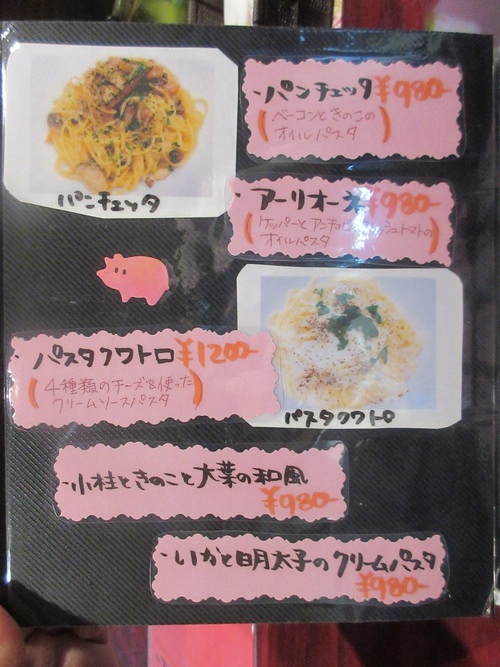 ・パンチェッタ ¥980-
(ベーコンときのこの
オイルパスタ)
パンチェッタ
・アーリオ ¥980-
(ケッパーと
オイルパスタ)
・パスタクワトロ ¥1200-
(4種類のチーズを使った
クリームソースパスタ)
パスタクワトロ
・小柱ときのこと大葉の和風
¥980-
・いかと明太子のクリームパスタ
¥980-